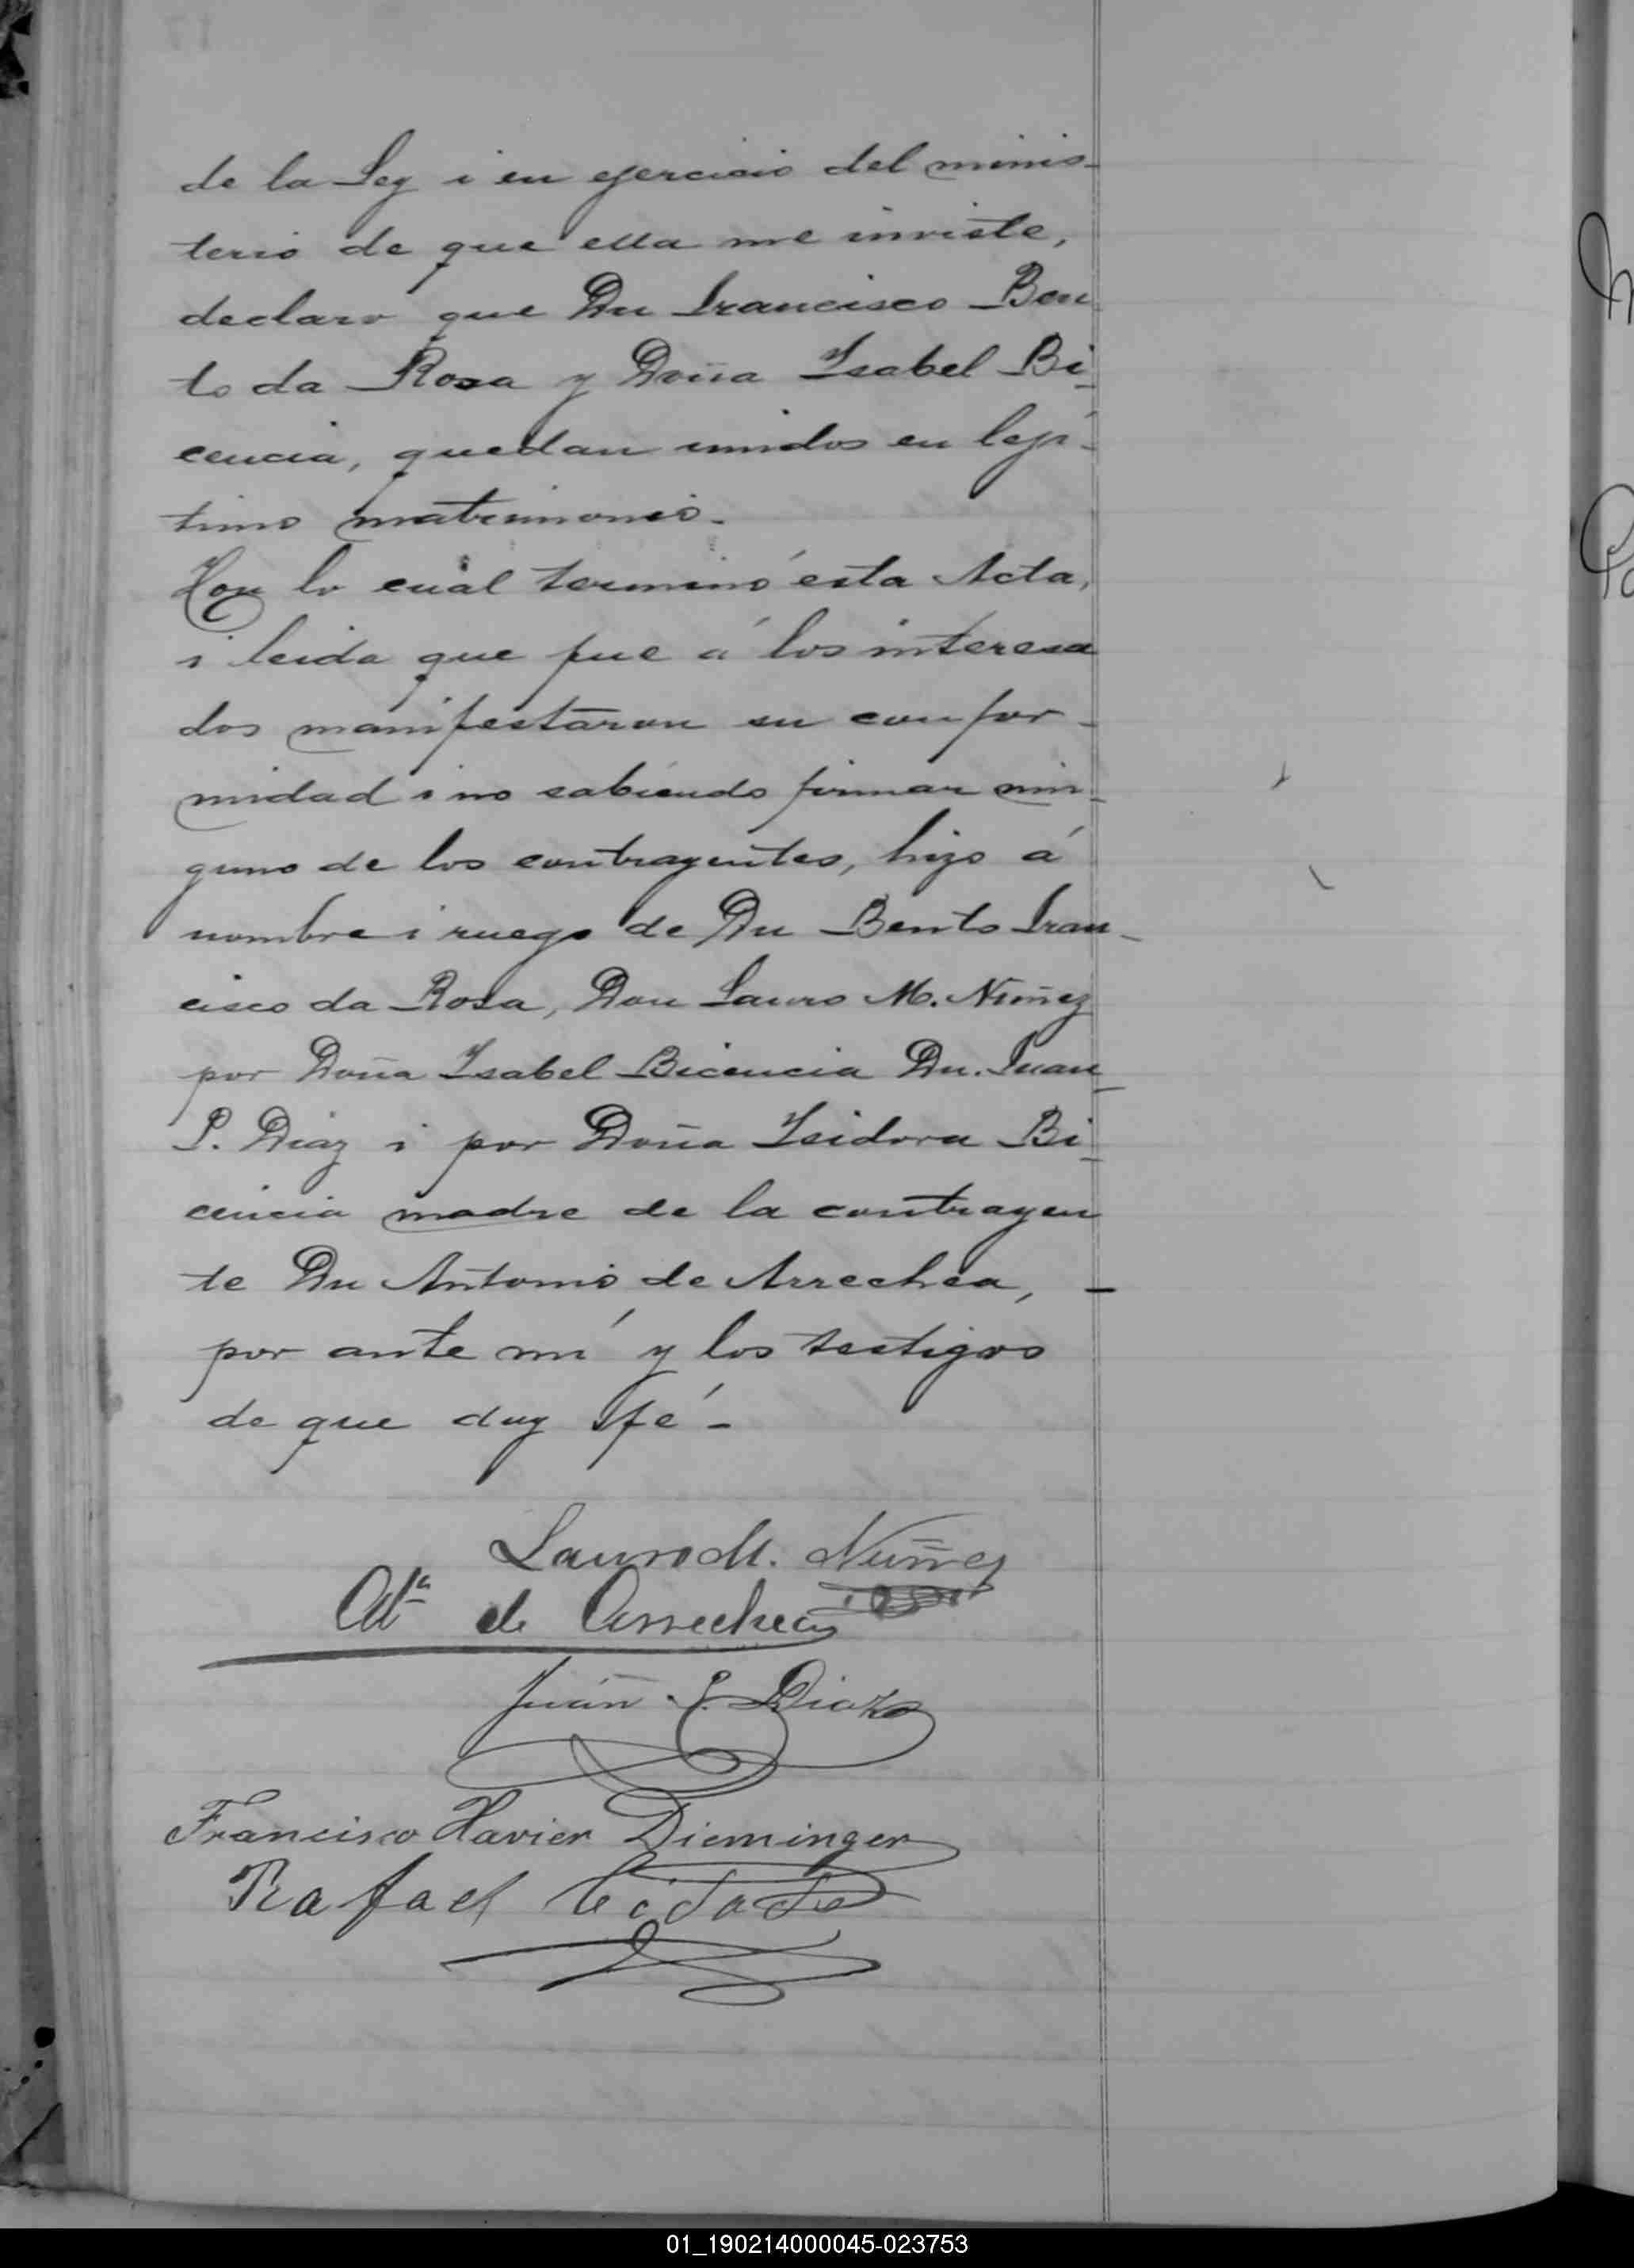 de la Ley i en ejercicio del minis-
terio de que ella me inviste,
declaro que Dn Francisco Ben
to da Rosa y Doña Isabel Bi-
cencia, quedan unidos en lejí-
timo matrimonio.
Con lo cual terminó esta Acta,
i leida que fue á los interesa
dos manifestaron su confor-
midad i no sabiendo firmar nin-
guno de los contrayentes, hizo á
nombre i ruego de Dn Bento Fran-
cisco da Rosa, Don Lauro M. Nuñez
por Doña Isabel Bicencia Dn. Juan
P. Diaz i por Doña Isidora Bi-
cencia madre de la contrayen
te Dn Antonio de Arrechea, -
por ante mí y los testigos
de que doy fé-
Lauro M. Nuñez
de Arrechea
Juan P. Diaz
Francisco Xavier Dieminger
Rafael
01_190214000045-023753